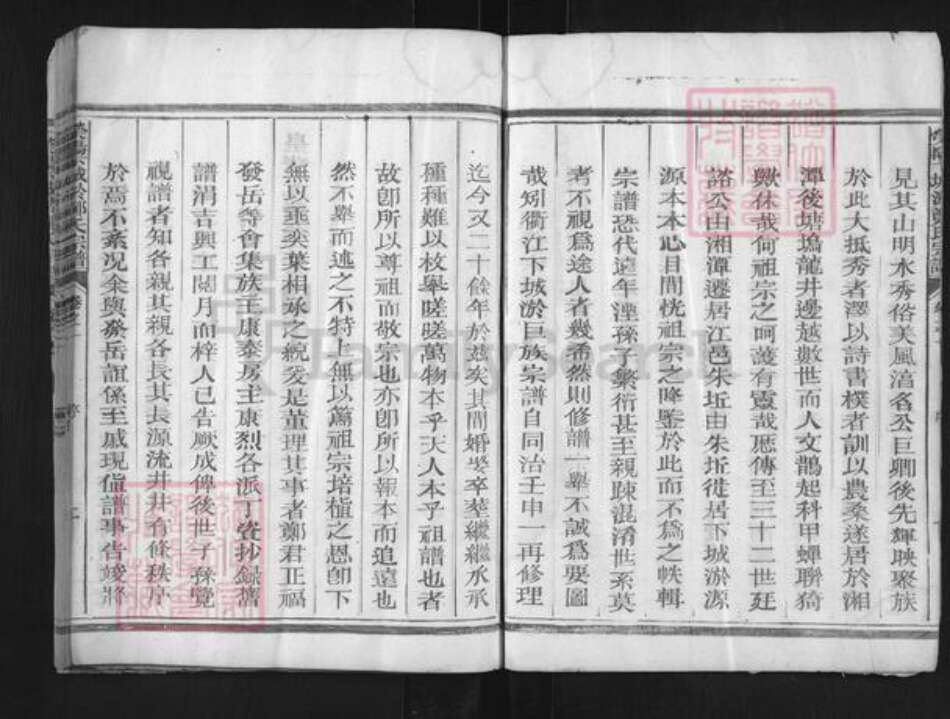 見其山明水秀俗美風淯名公巨卿後先輝映聚族
於此大抵秀者澤以詩書樸者訓以農桑遂居於湘
潭後塘塢龍井邊越數世而人文鵲起科甲蟬聯猗
歟休哉何祖宗之呵護有靈哉歷傳至三十二世廷
諮公由湘潭遷居江邑朱坵由朱坵徙居下城淤源
源本本心目間恍祖宗之降鑒於此而不爲之帙輯
宗譜恐代遠年湮孫子繁衍甚至親踈混淆世系莫
考不視爲途人者幾希然則修譜一舉不誠爲要圖
哉矧衢江下城淤巨族宗譜自同治壬申一再修理
迄今又二十餘年於茲矣其間婚娶卒塟繼繼承承
種種難以枚舉嗟嗟萬物本乎天人本乎祖譜也者
故卽所以尊祖而敬宗也亦卽所以報本而追遠也
然不舉而述之不特上無以篤祖宗培植之恩卽下
無以垂奕葉相承之統爰是董理其事者鄭君正福
發岳等會集族王康泰房主康烈各派丁瓷抄録舊
譜涓吉興工閱月而梓人已告厥成俾後世子孫覽
視譜者知各親其親各長其長源流井井有條秩序
於焉不紊况余與發岳誼係至戚現値譜事告竣將
FamilySearch